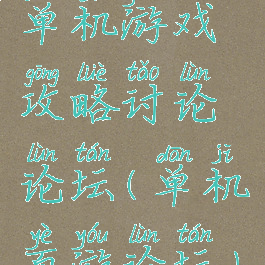 单机游戏
gōng lüè tǎo lùn
攻略讨论
lùn tán dān jī
论坛(单机
yè yóu lùn tán
页游论坛)